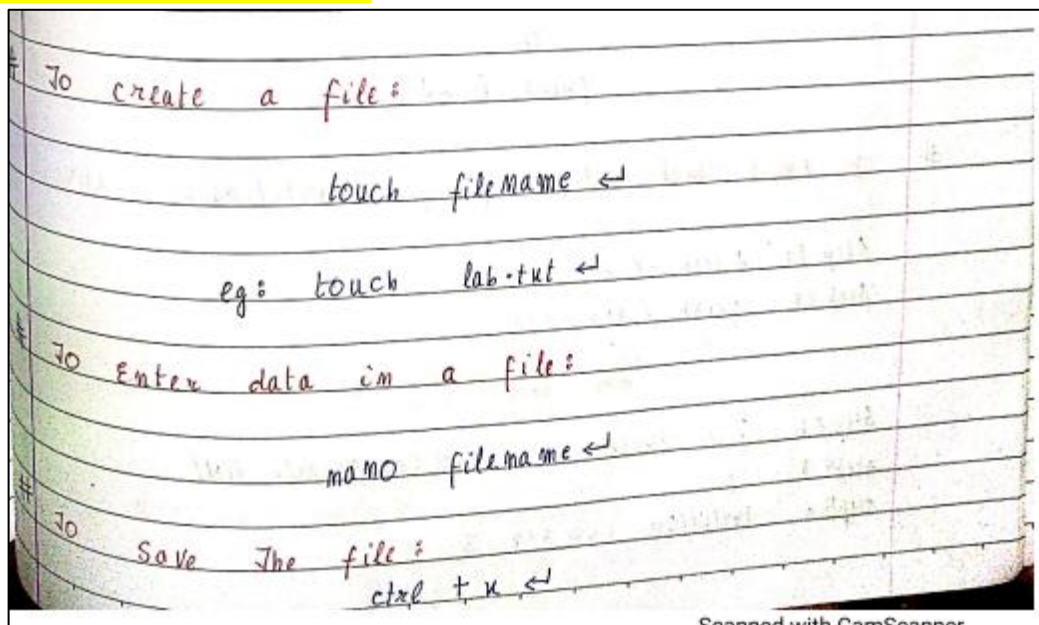 # To create a file:
touch filename ↵
eg: touch lab.txt ↵
# To Enter data in a file:
nano filename ↵
# To Save The file:
ctrl + x ↵
Scanned with CamScanner